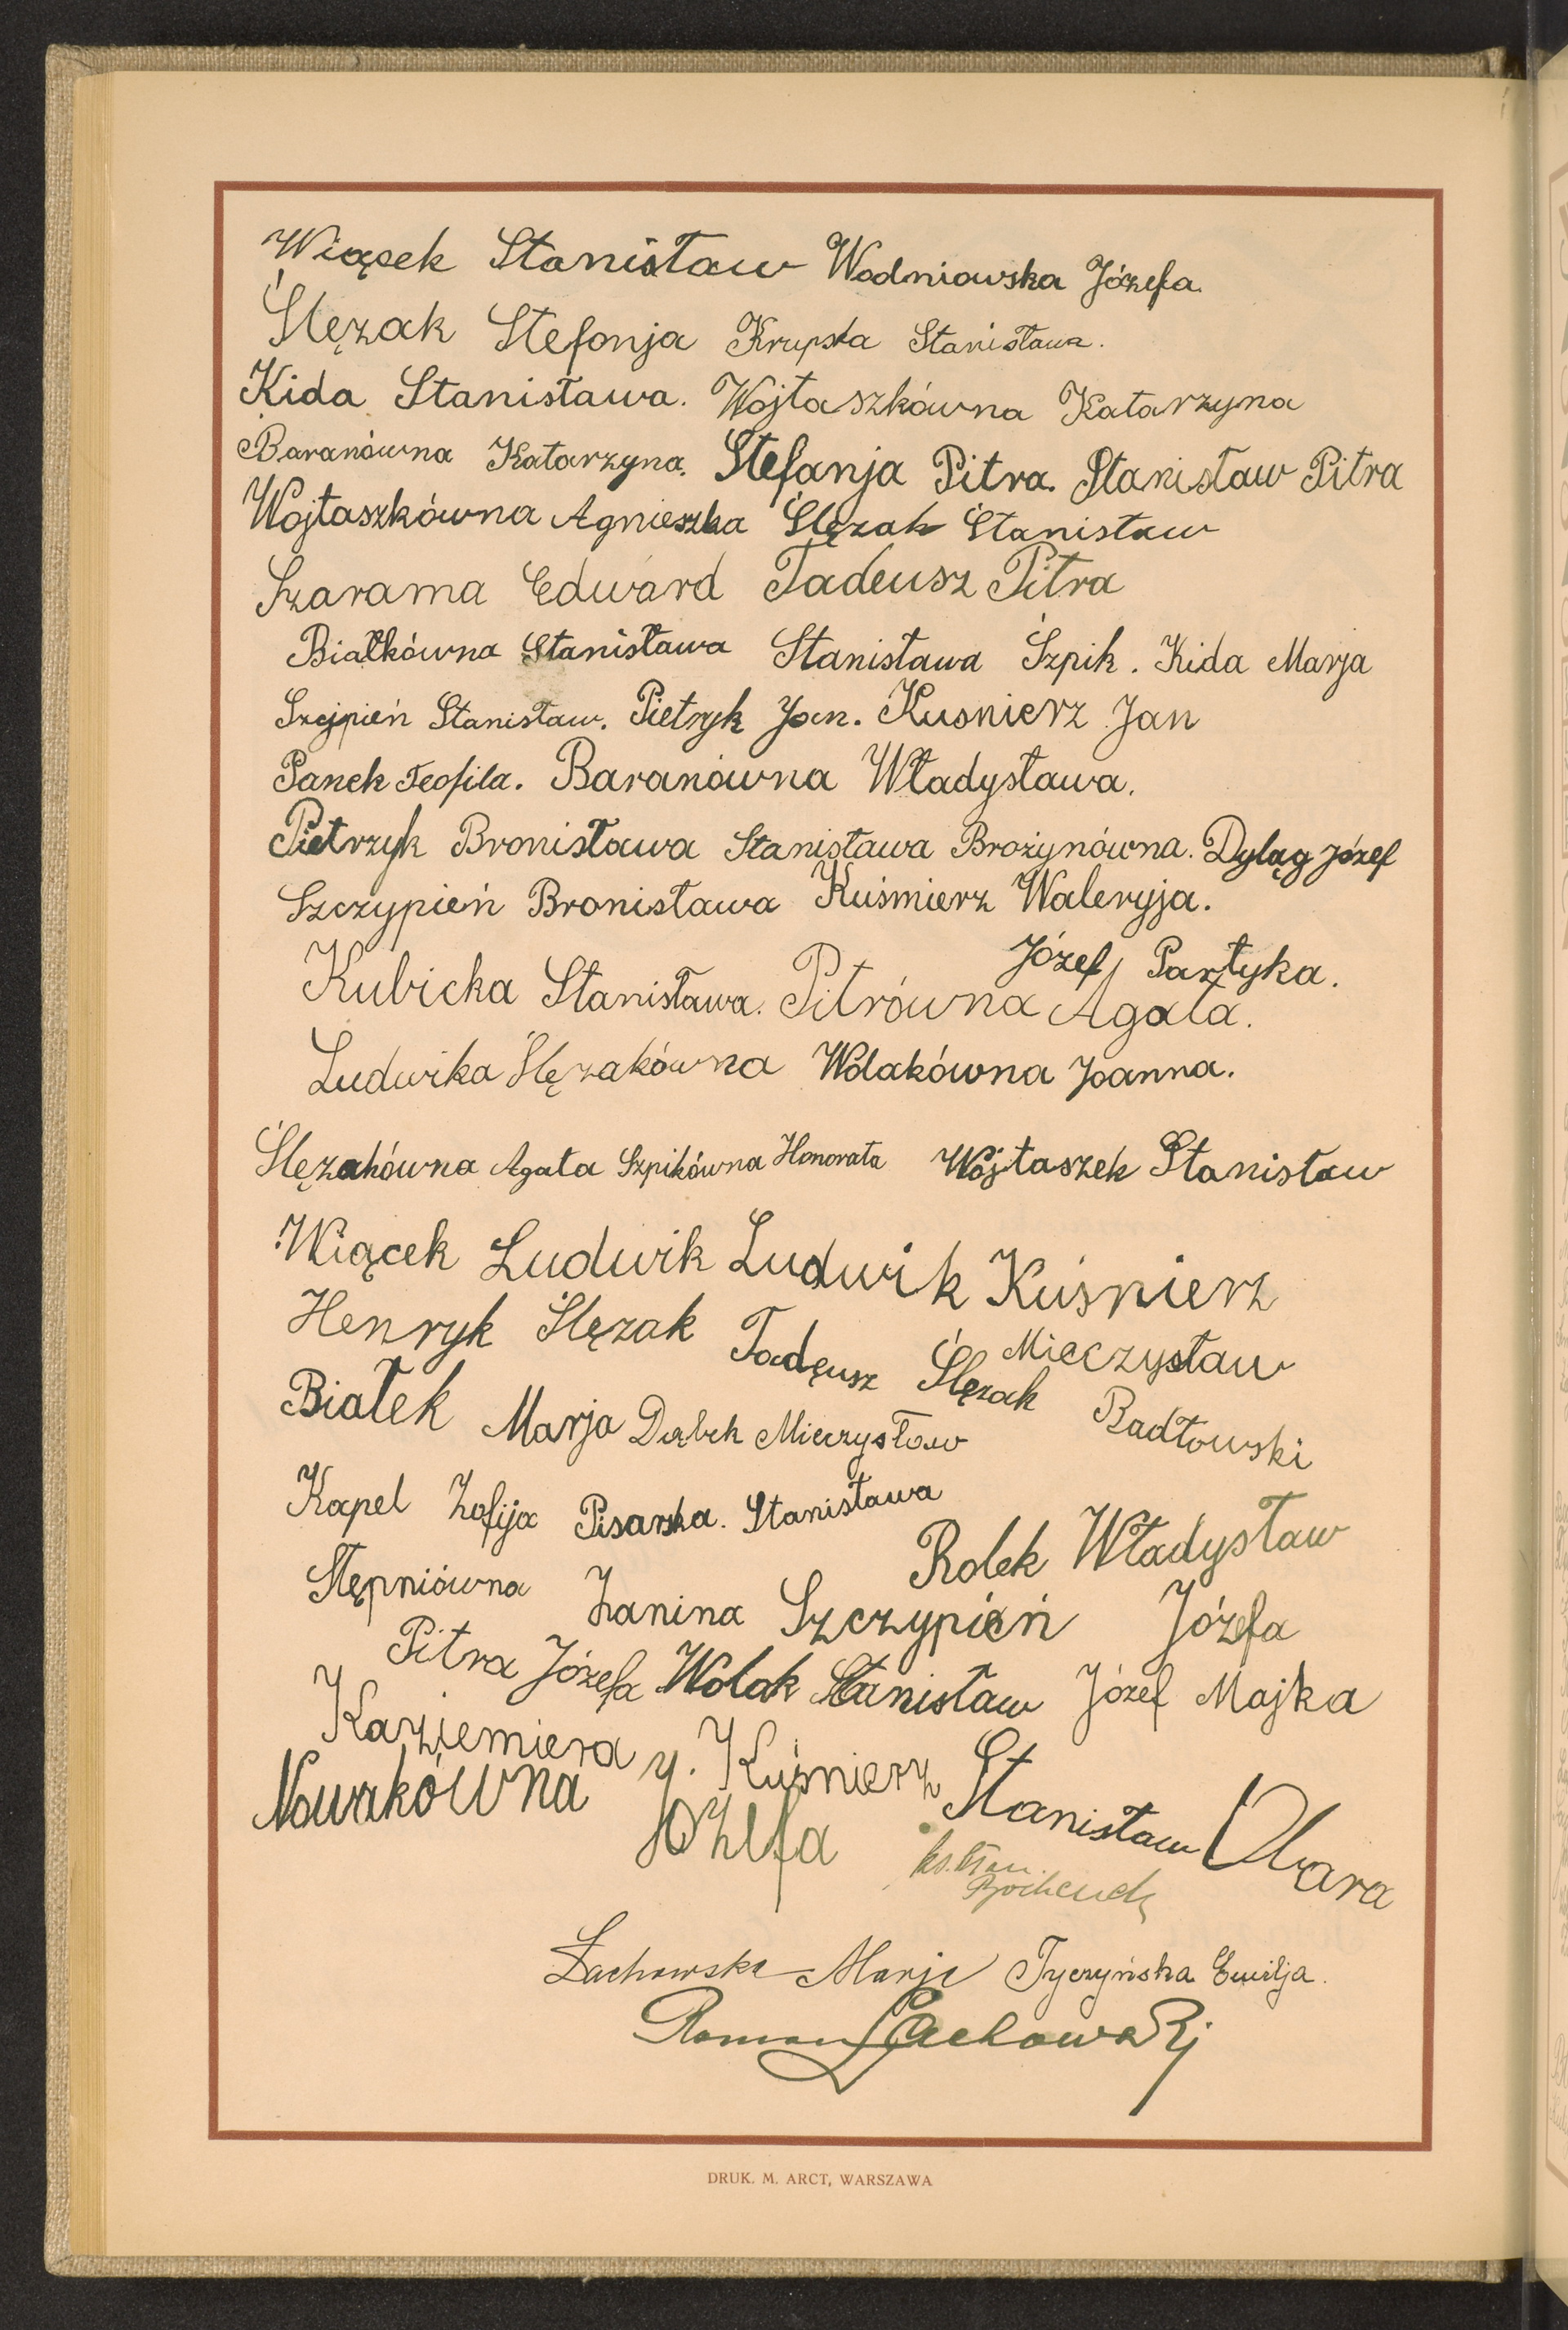 Wiącek Stanisław Wodniowska Józefa.
Ślęzak Stefonja Krupska Stanisława.
Kida Stanisława. Wojtaszkówna Katarzyna
Baranówna Katarzyna. Stefanja Pitra. Stanisław Pitra
Wojtaszkówna Agnieszka Ślęzak Stanisław
Szarama Edward Tadeusz Pitra
Białkówna Stanisława Stanisława Szpik. Kida Marja
Szejpień Stanisław. Pietryk Jan. Kusnierz Jan
Panek Teofila. Baranówna Władysława.
Pietrzyk Bronisława Stanisława Brożynówna. Dyląg Józef
Szczypień Bronisława Kuśmierz Waleryja.
Józef Partyka.
Kubicka Stanisława. Pitrówna Agata.
Ludwika Ślęzakówna Wolakówna Joanna.
Ślęzakówna Agata Szpikówna Honorata Wójtaszek Stanisław
Wiącek Ludwik Ludwik Kuśnierz
Henryk Ślęzak Tadeusz Ślęzak Mieczysław
Białek Marja Dąbek Mieczysław Badłowski
Kapel Zofija Pisarska. Stanisława
Rolek Władysław
Stępniówna Janina Szczypień Józefa
Pitra Józefa Wolak Stanisław Józef Majka
Kaziemiera y. Kuśnierz Stanisław Obara
Nowakówna Józefa
ks. Stan.
Bochenek
Lachowska Marja Tyczyńska Emilja.
Roman Lachowski
DRUK. M. ARCT, WARSZAWA